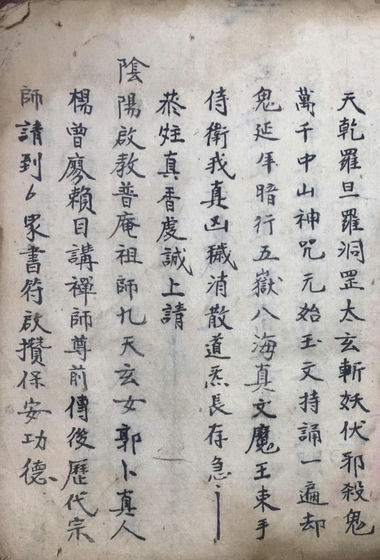 天乾羅旦羅洞罡太玄斬妖伏邪殺鬼
萬千中山神咒元始玉文持誦一遍却
鬼延年暗行五嶽八海真文魔王束手
侍衛我真凶穢消散道炁長存急
恭炷真香虔誠上請
陰陽啟教普庵祖師九天玄女郭卜真人
楊曾廖賴目講禪師尊前傳後歷代宗
師請到 眾書符啟攢保安功德